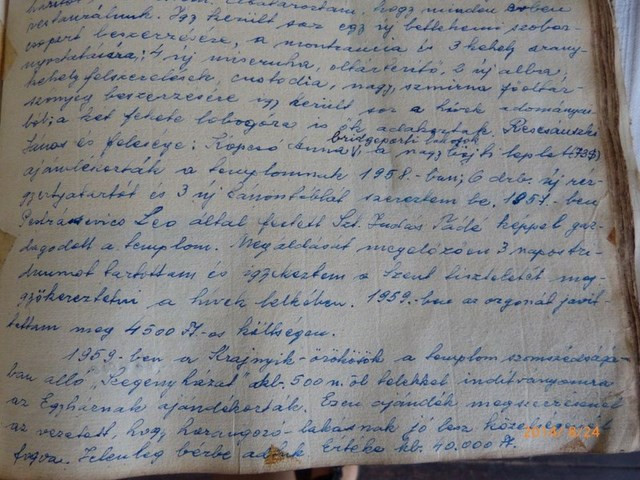 hogy minden évben
restauráljunk. Így került sor egy új betlehemi szobor-
csoport beszerzésére, a monstrancia és 3 kehely arany-
nyoztatására; 4 új miseruha, oltárterítő, 2 új alba,
kehelyfelszerelések, custodia, nagy szmirna főoltár-
szőnyeg beszerzésére így került sor a hívek adományai-
ból; a két fekete lobogóra is ők adakoztak. Rescsánszki
János és felesége: Kopcsó Anna bridgeporti lakosok a nagybőjti leplet (73$)
ajándékozták a templomnak 1958.-ban; 6 drb. új réz-
gyertyatartót és 3 új kánontáblát szereztem be. 1957.-ben
Leo által festett Szt. Judás Tádé képpel gaz-
dagodott a templom. Megáldását megelőzően 3 napos tri-
duumot tartottam és igyekeztem a Szent tiszteletét meg-
gyökereztetni a hívek lelkében. 1959.-ben az orgonát javít-
tattam meg 4500 Ft.-os költségen.
1959.-ben a Krajnyik-örökösök a templom szomszédságá-
ban álló „Szegényházat" kb. 500 n.öl telekkel indítványomra
az Egyháznak ajándékozták. Ezen ajándék megszerzésénél
az vezetett, hogy harangozó-lakásnak jó lesz
fogva. Jelenleg bérbe adtuk Értéke kb. 40.000 Ft.
2014/6/24